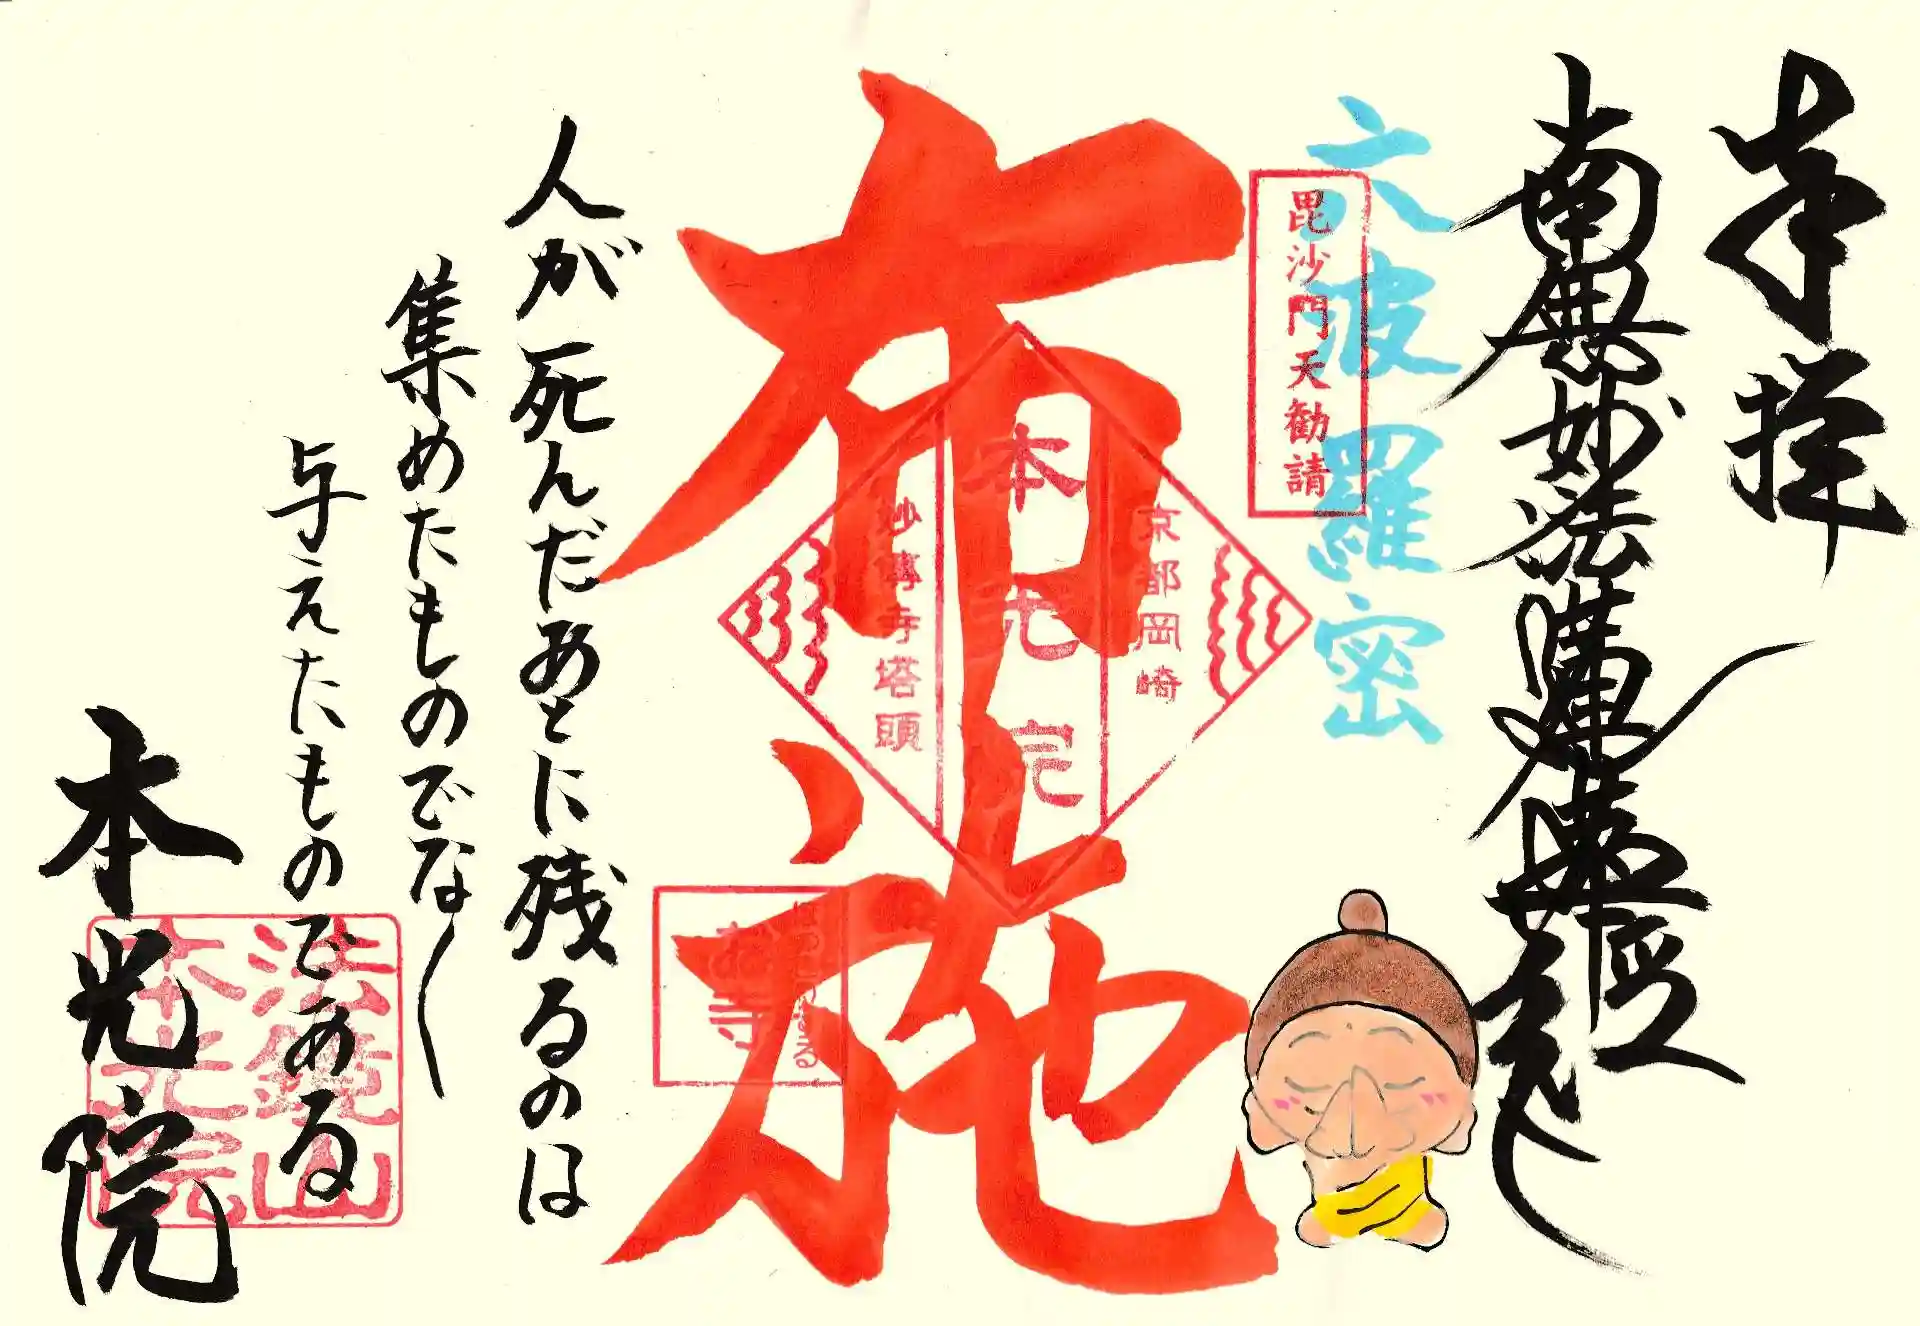 奉拝
南無妙法蓮華経
六波羅密
毘沙門天勧請
布施
京都岡崎
本光院
妙傳寺塔頭
人が死んだあとに残るのは
集めたものでなく
与えたものである
法鏡山
本光院
本光院